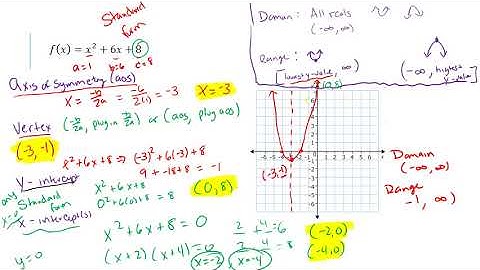 Standard
form
f(x) = x² + 6x + 8
a=1 b=6 c=8
axis of Symmetry (aos)
x = -b/2a = -6/2(1) = -3
x = -3
Vertex
(-b/2a, plug in -b/2a) or (aos, plug aos)
(-3, -1)
x² + 6x + 8 ⇒ (-3)² + 6(-3) + 8
9 + -18 + 8 = -1
y - intercept
x² + 6x + 8
0² + 6(0) + 8 = 8
(0, 8)
Standard
form
x = 0
x - intercept(s)
y = 0
x² + 6x + 8 = 0
(x + 2)(x + 4) = 0
x = -2 x = -4
2 + 4 = 6
2 · 4 = 8
(-2, 0)
(-4, 0)
Domain: All reals
(-∞, ∞)
Range:
[lowest y-value, ∞)
(-∞, highest
y-value]
(0, 8)
(-3, -1)
Domain
(-∞, ∞)
Range
-1, ∞)